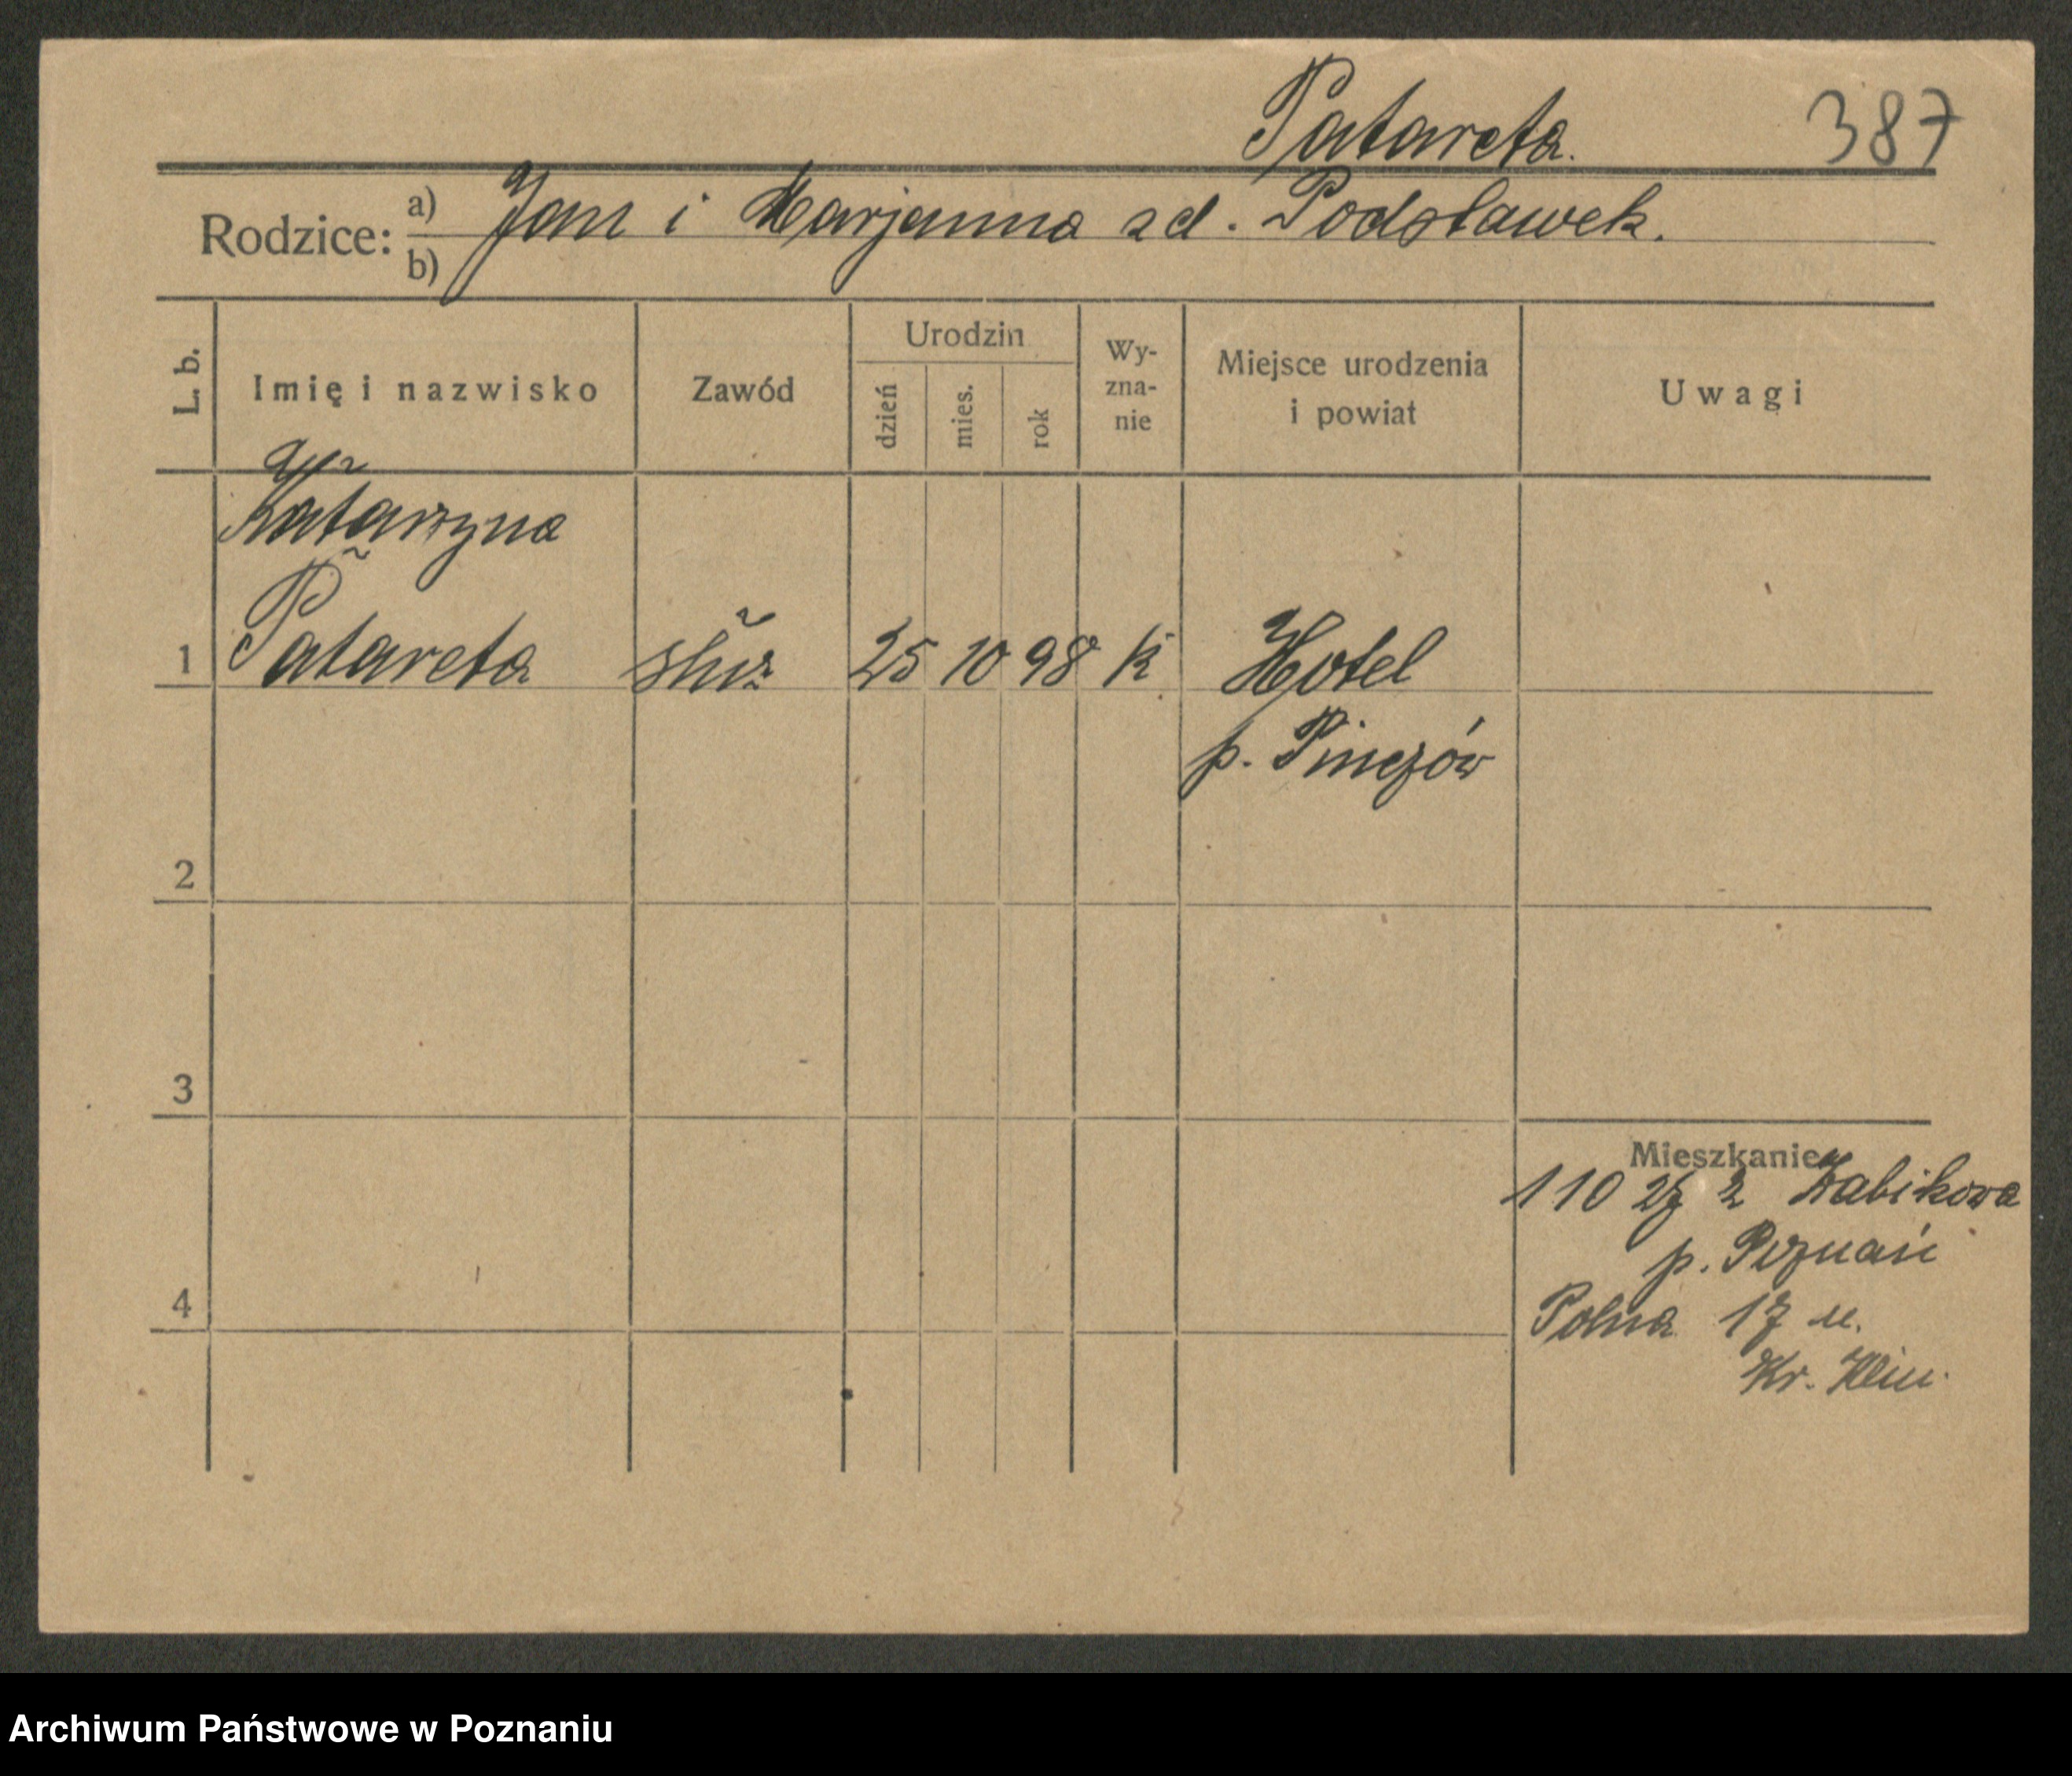 Patareta.
387
Rodzice: a) Jan i Marjanna zd. Podsławek.
b)
L. b.
Imię i nazwisko
Zawód
Urodzin
dzień
mies.
rok
Wy-
zna-
nie
Miejsce urodzenia
i powiat
Uwagi
Katarzyna
1 Patareta służ 25 10 98 k Hotel
p. Pinczów
2
3
Mieszkanie
1 10 27 z Żabikowa
p. Poznań
4
Polna 17 u.
Kr. Klin.
Archiwum Państwowe w Poznaniu